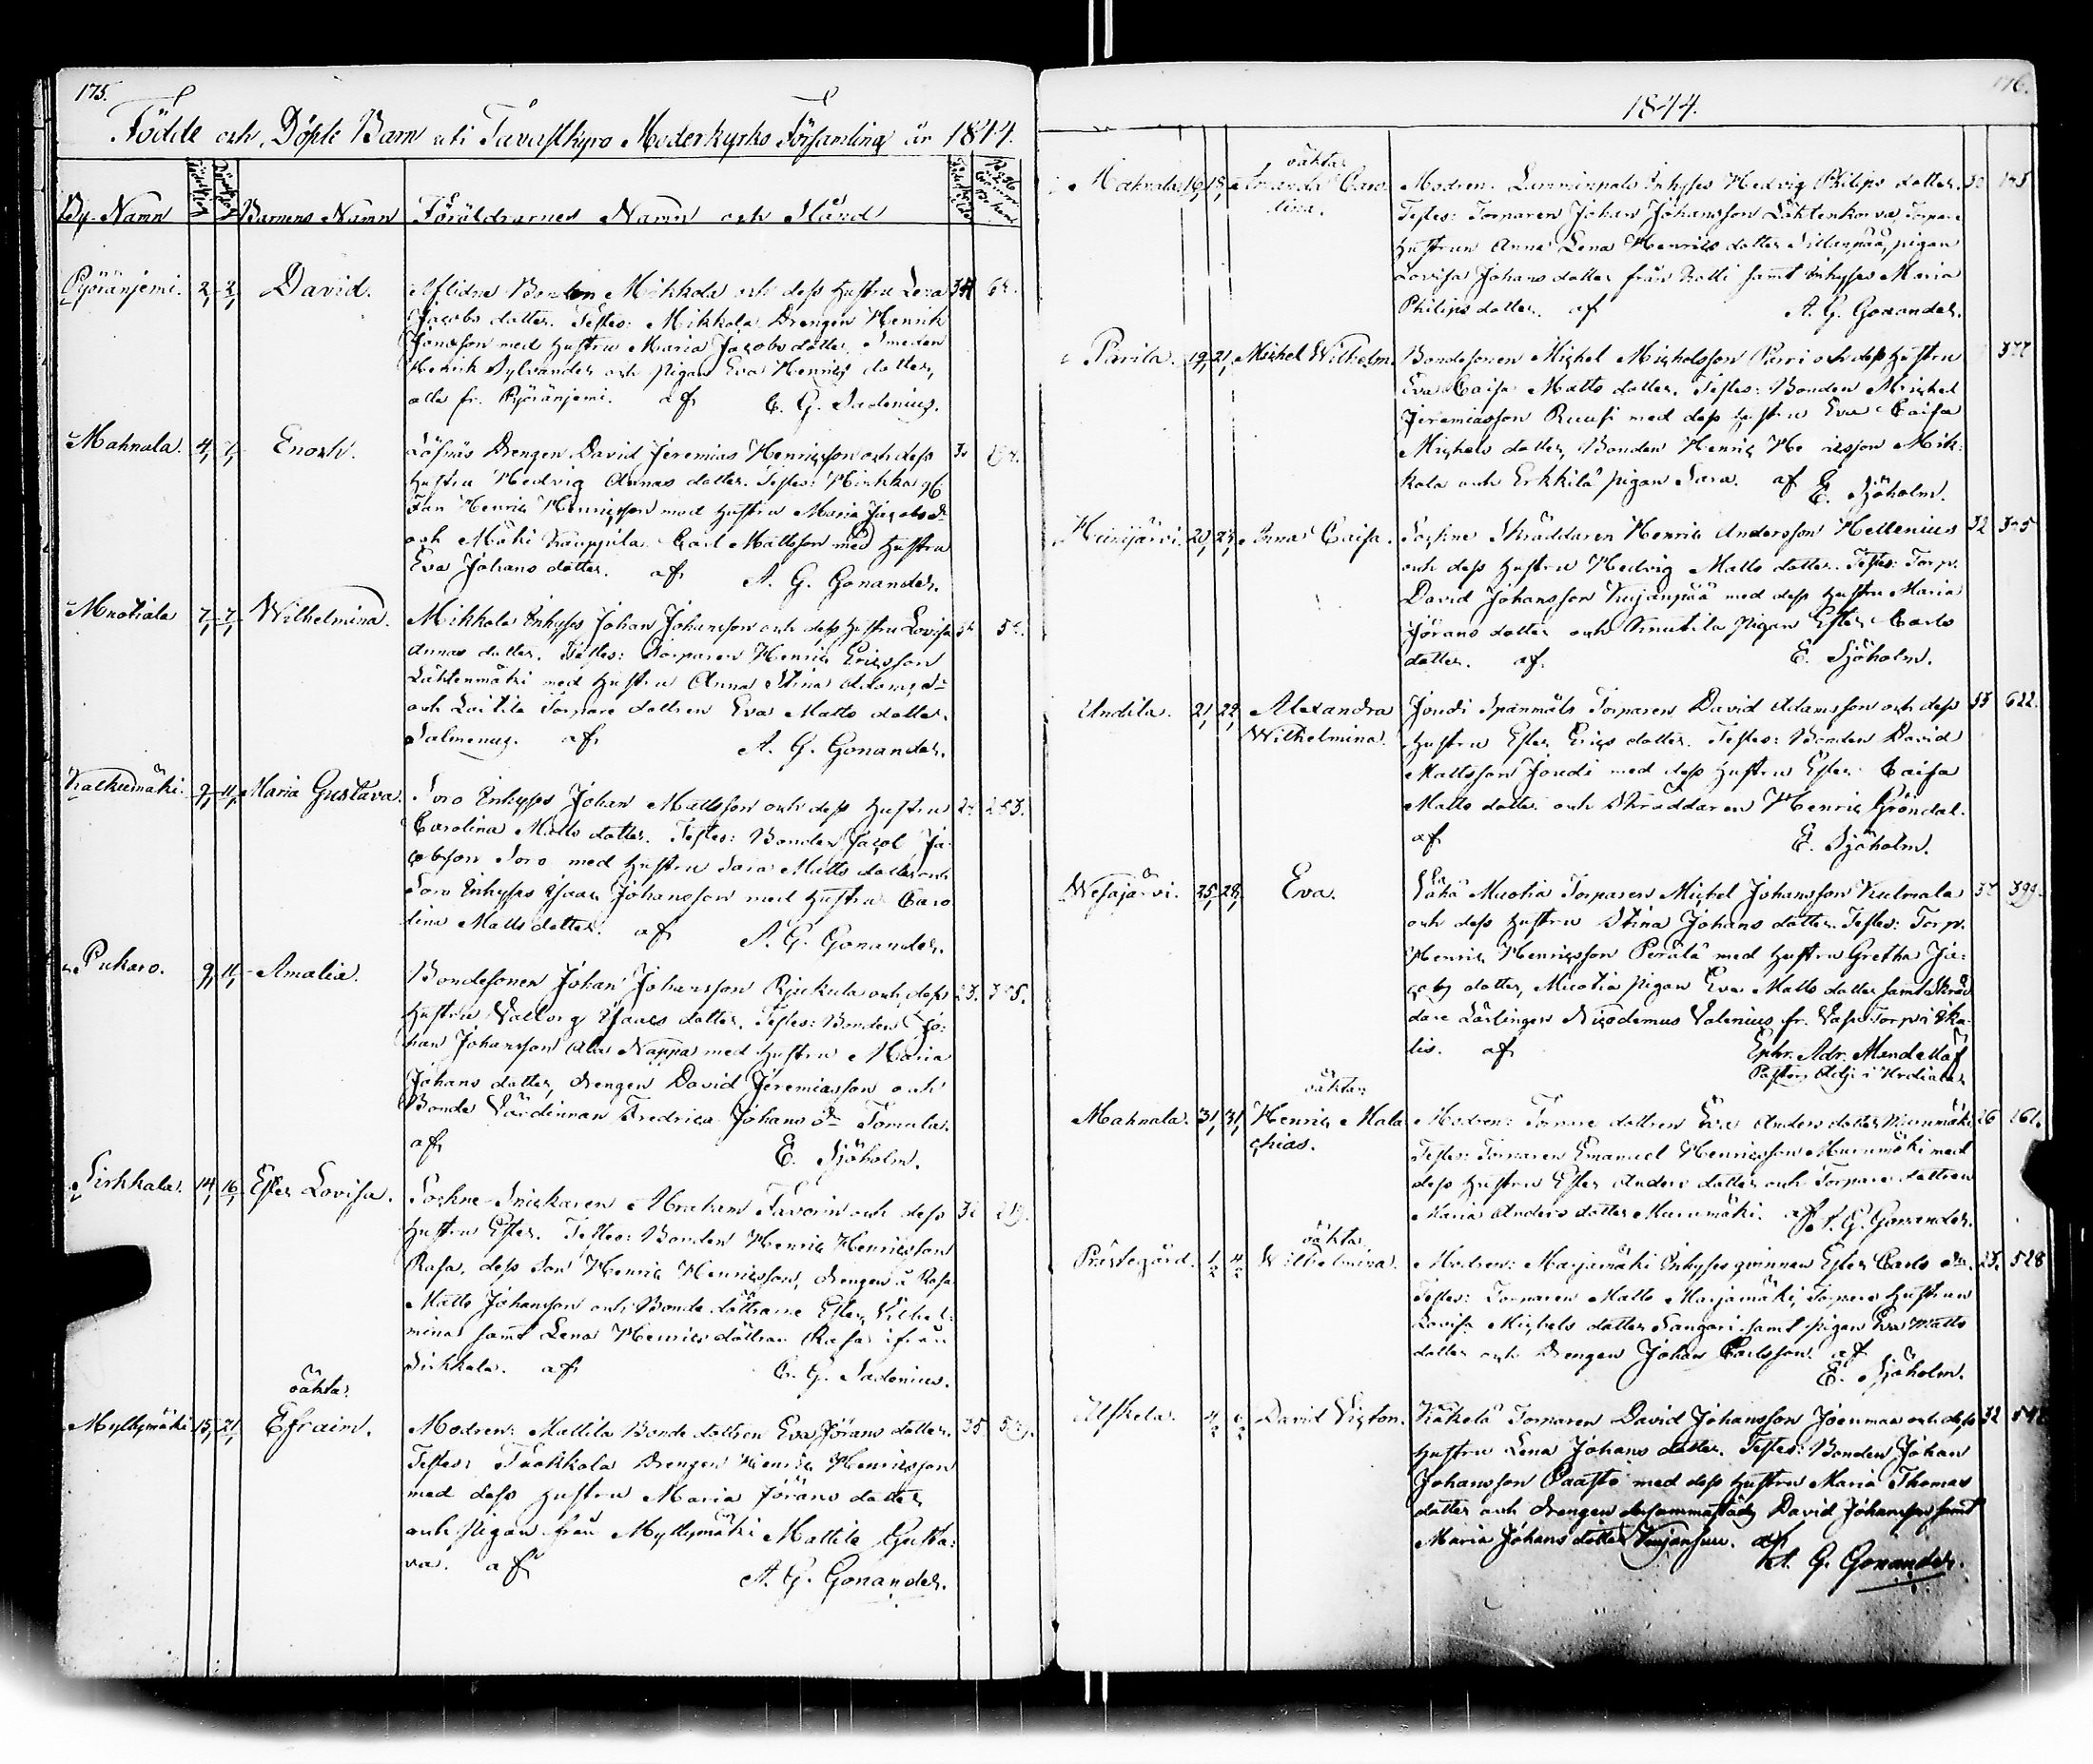 175.
Födde och Döpte Barn uti Tavastkyro Moderkyrko Församling år 1844.
By-Namn Barnens Namn Föräldrarnes Namn och Stånd
Pyöränjemi. 2, 2, David. Aflidne Bonden Mikkola och dess hustru Lena 34
Jacobs dotter. Testes: Mikkola Drengen Henrik
Jönsson med hustru Maria Jacobs dotter, Smeden
Henrik Sylvander och pigan Eva Henrics dotter,
alla fr. Pyöränjemi. af C. G. Sadenius.
Mahnala. 4, 7, Enoch. Löfnäs Drengen David Jeremias Henricsson och dess
hustru Hedvig Annas dotter. Testes:
Henric Henricsson med hustru Maria Jacobs dr
och Mäki Kauppila Carl Mattsson med hustru
Eva Johans dotter. af A. G. Gonander.
Mnotiala 7, 7, Wilhelmina. Mikkola Inhyses Johan Johansson och dess hustru Lovisa
Annas dotter. Testes: Torparen Henric Ericsson
Lähtenmäki med hustru Anna Stina Adams dr
och Laitila Torpare dottren Eva Matts dotter
Salmenus. af A. G. Gonander.
Kalkunmäki. 9, 11, Maria Gustava. Soro Inhyses Johan Mattsson och dess hustru
Carolina Matts dotter. Testes: Bonden Jacob Ja-
cobsson Soro med hustru Sara Matts dotter och
Soro Inhyses Isaac Johansson med hustru Caro
lina Matts dotter. af A. G. Gonander.
Pukaro. 9, 11, Amalia. Bondesonen Johan Johansson Rjukula och dess 23.
hustru Valborg Isaacs dotter. Testes: Bonden Jo-
han Johansson Ala Nappa med hustru Maria
Johans dotter, drengen David Jeremiasson och
Bonde Värdinnan Fredrica Johans dr Tomula.
af E. Sjöholm.
Sirkkala. 14, 16, Ester Lovisa. Sockne Snickaren Abraham Tavorin och dess
hustru Ester. Testes: Bonden Henric Henricsson
Rasa, dess Son Henric Henricsson, drengen å Rasa
Matts Johansson och Bonde döttrarne Ester, Vilhel-
mina samt Lena Henrics döttrar Rasa ifrån
Sirkkala. af C. G. Sadenius.
oäkta:
Myllymäki 15, 21, Efraim. Modren: Mattila Bonde dottren Eva Jörans dotter. 35
Testes: Tuokkola Drengen Henric Henricsson
med dess hustru Maria Jörans dotter
och pigan från Myllymäki Mattila Gusta-
va. af A. G. Gonander.
176.
1844.
oäkta:
Mahnala. 16, 18, Amanda Caro- Modren: Lamminpals Inhyses Hedvig Philips dotter.
lina. Testes: Torparen Johan Johansson Lähtenkorva, Torpare
hustrun Anna Lena Henrics dotter Sillanpää, pigan
Lovisa Johans dotter från samt Inhyses Maria
Philips dotter. af A. G. Gonander.
Parila. 19, 21, Michel Wilhelm. Bondesonen Michel Michelsson Parri och dess hustru
Eva Caisa Matts dotter. Testes: Bonden Michel
Jeremiasson Ruusi med dess hustru Eva Caisa
Michels dotter, Bonden Henric Mik-
kola och Erkkilä pigan Sara. af E. Sjöholm.
Heinijärvi. 20, 24, Anna Caisa. Sockne Skräddaren Henric Andersson Hellenius 32
och dess hustru Hedvig Matts dotter. Testes: Torp.
David Johansson Vuojanpää med dess hustru Maria
Jörans dotter och Knutila pigan Ester Carls
dotter. af E. Sjöholm.
Undila. 21, 24, Alexandra Joudi Spånmäls Torparen David Adamsson och dess 33 622.
Wilhelmina. hustru Ester Erics dotter. Testes: Bonden David
Mattsson Joudi med dess hustru Ester Caisa
Matts dotter och Skräddaren Henric Gröndal.
af E. Sjöholm.
Wesajärvi. 25, 28, Eva. Muotia Torparen Michel Johansson Kulmala 399.
och dess hustru Stina Johans dotter. Testes: Torp.
Henric Henricsson Perälä med hustru Gretha Ja-
cobs dotter, Muotia pigan Eva Matts dotter samt Skräd
dare Lärlingen Nicodemus Valenius fr.
lis. af Ephr. Adr. Mendellöf
Past. Adj. i Urdiala
oäkta:
Mahnala. 31, 31, Henric Mala Modren: Torpare dottren Eva Anders dotter Murumäki 26
chias. Testes: Torparen Emanuel Henricsson Murumäki med
dess hustru Ester Anders dotter och Torpare dottren
Maria Anders dotter Murumäki. af A. G. Gonander.
oäkta
Prästegård. 1/2 4/2 Wilhelmina. Modren: Marjamäki Inhyses qvinnan Ester Carls dtr. 25. 528
Testes: Torparen Matts Marjamäki, Torpare hustrun
Lovisa Michels dotter Sangari samt pigan Eva Matts
dotter och Drengen Johan Carlsson. af
E. Sjöholm.
Uskela. 4/2 6/2 David Victor. Käkelä Torparen David Johansson Joenmaa och dess 32
hustru Lena Johans dotter. Testes: Bonden Johan
Johansson Paasto med dess hustru Maria Thomas
dotter och drengen dersammastäds David Johansson samt
Maria Johans dotter. af
A. G. Gonander.